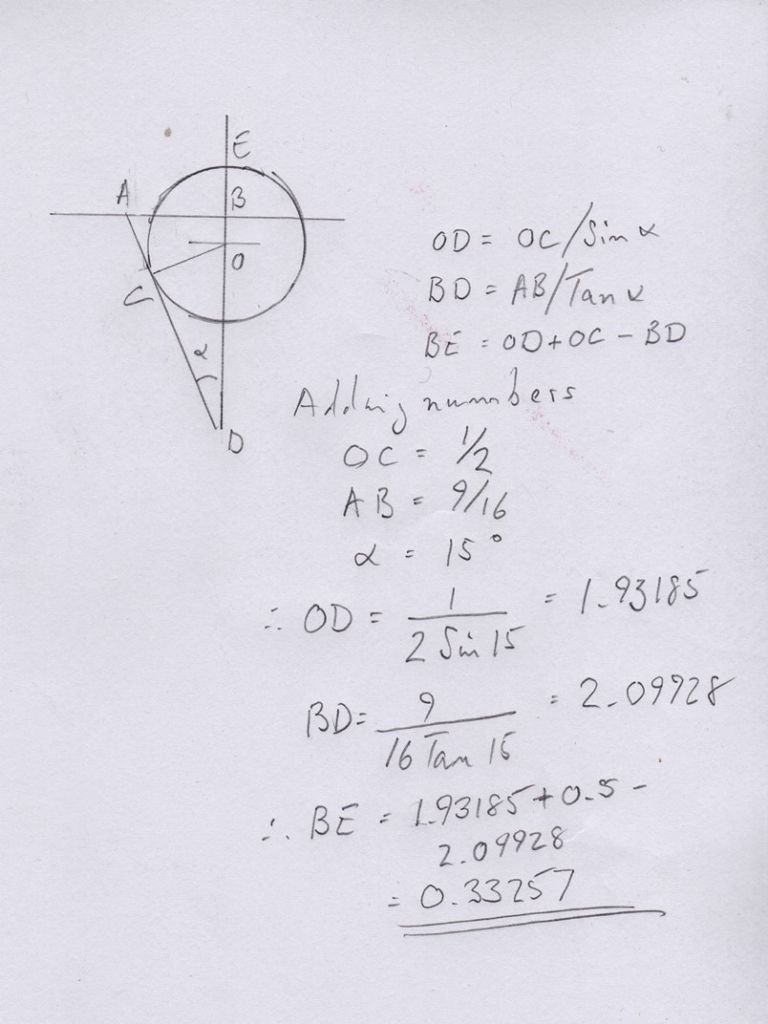 E
A
B
O
C
α
D
OD = OC/Sin α
BD = AB/Tan α
BE = OD+OC - BD
Adding numbers
OC = 1/2
AB = 9/16
α = 15°
∴ OD = 1 / 2 Sin 15 = 1.93185
BD = 9 / 16 Tan 15 = 2.09928
∴ BE = 1.93185+0.5 -
2.09928
= 0.33257